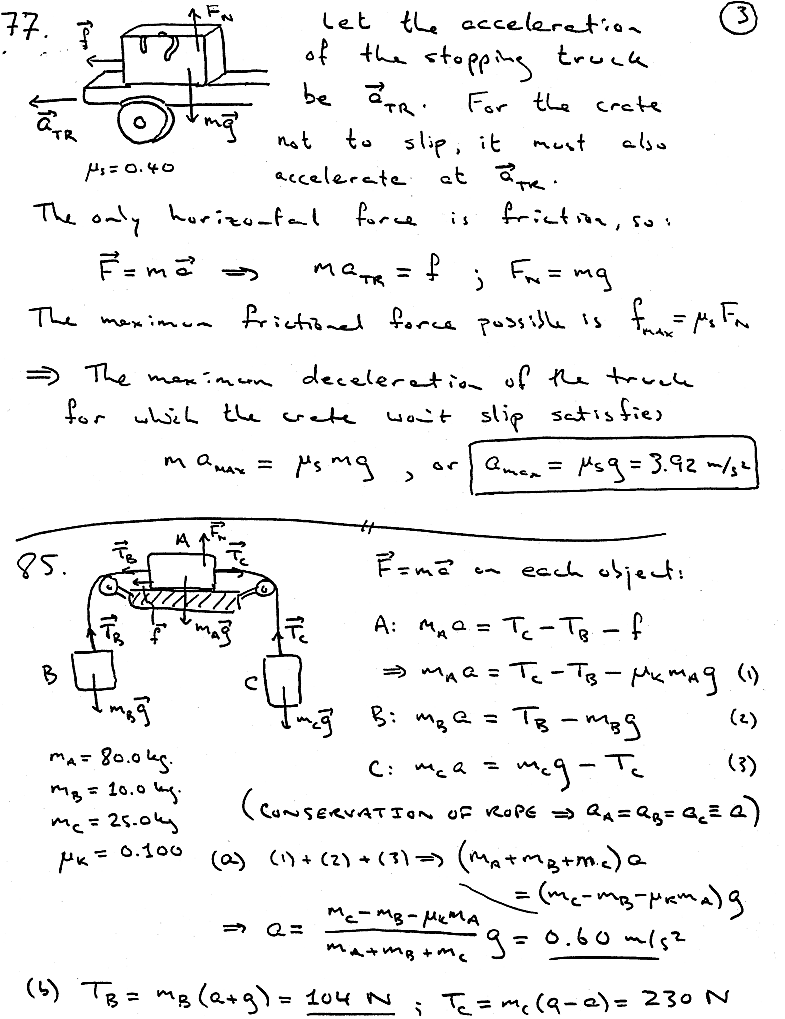 77.
③
f⃗
F_N
a⃗_TR
mg⃗
μ_s = 0.40
Let the acceleration
of the stopping truck
be a⃗_TR. For the crate
not to slip, it must also
accelerate at a⃗_TR.
The only horizontal force is friction, so:
F⃗ = ma⃗ ⇒ ma_TR = f ; F_N = mg
The maximum frictional force possible is f_MAX = μ_s F_N
⇒ The maximum deceleration of the truck
for which the crate won't slip satisfies
m a_MAX = μ_s mg , or a_max = μ_s g = 3.92 m/s²
85.
A F⃗_N
T⃗_B T⃗_C
f⃗ m_A g⃗
T⃗_B T⃗_C
B C
m_B g⃗ m_C g⃗
m_A = 80.0 kg.
m_B = 10.0 kg.
m_C = 25.0 kg
μ_K = 0.100
F⃗ = ma⃗ on each object:
A: m_A a = T_C − T_B − f
⇒ m_A a = T_C − T_B − μ_K m_A g (1)
B: m_B a = T_B − m_B g (2)
C: m_C a = m_C g − T_C (3)
(CONSERVATION OF ROPE ⇒ a_A = a_B = a_C ≡ a)
(a) (1) + (2) + (3) ⇒ (m_A + m_B + m_C) a
= (m_C − m_B − μ_K m_A) g
⇒ a = (m_C − m_B − μ_K m_A)/(m_A + m_B + m_C) g = 0.60 m/s²
(b) T_B = m_B (a+g) = 104 N ; T_C = m_C (g−a) = 230 N